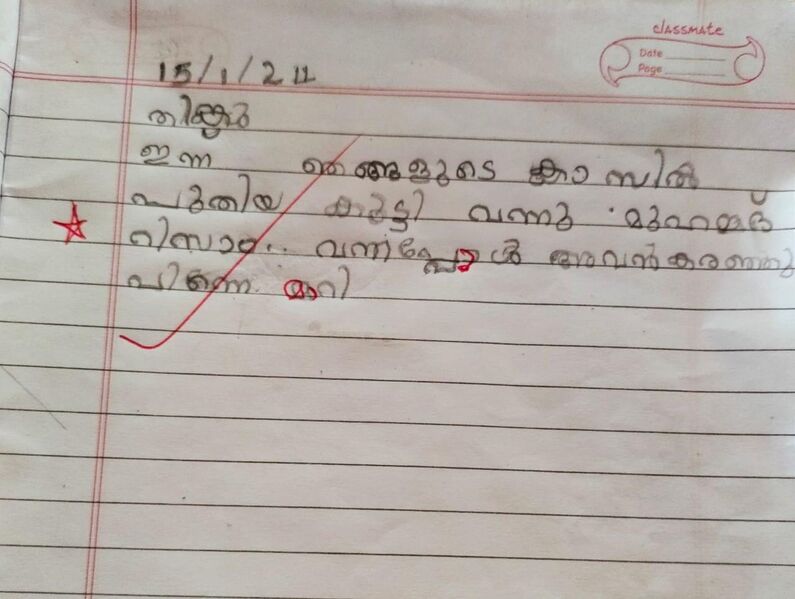 classmate
Date
Page
15/1/2
തിങ്കൾ
ഇന്ന ഞങ്ങളുടെ ക്ലാസിൽ
പുതിയ കുട്ടി വന്നു മുഹമ്മദ്
റിസാൻ.. വന്നപ്പോൾ അവൻ കരഞ്ഞു
പിന്നെ മാറി